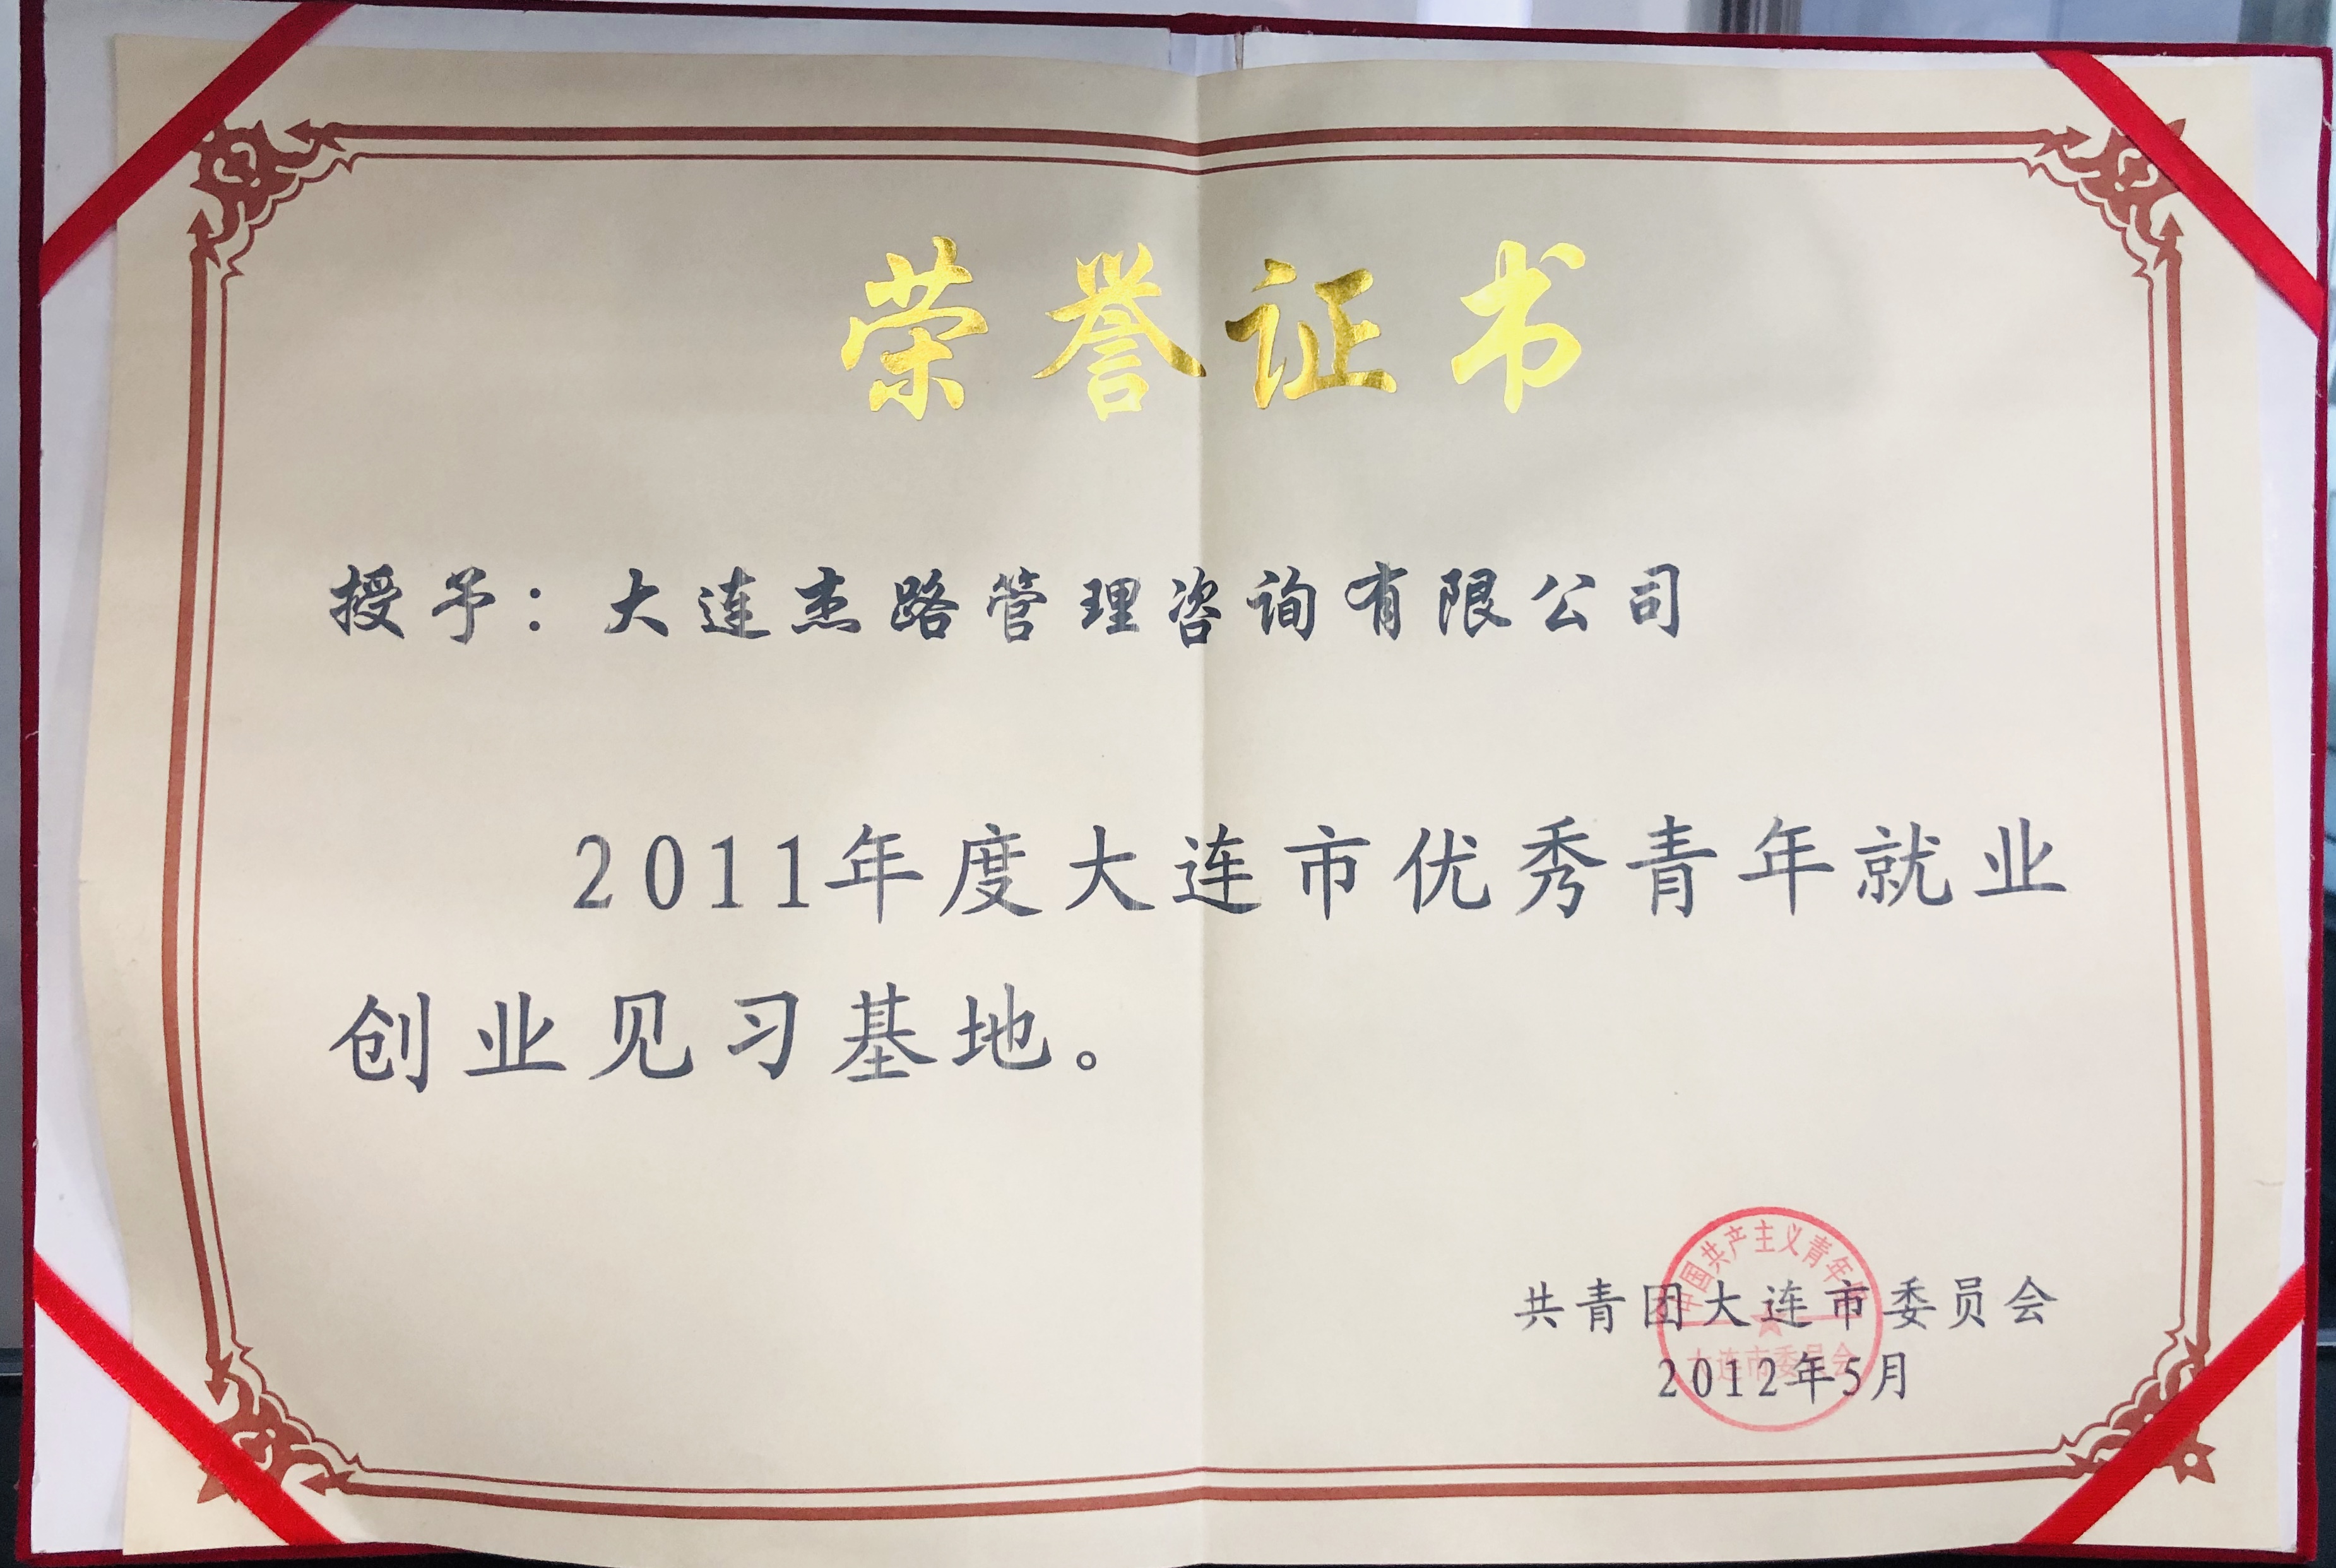 荣誉证书
授予：大连杰路管理咨询有限公司
2011年度大连市优秀青年就业
创业见习基地。
中国共产主义青年团
共青团大连市委员会
大连市委员会
2012年5月